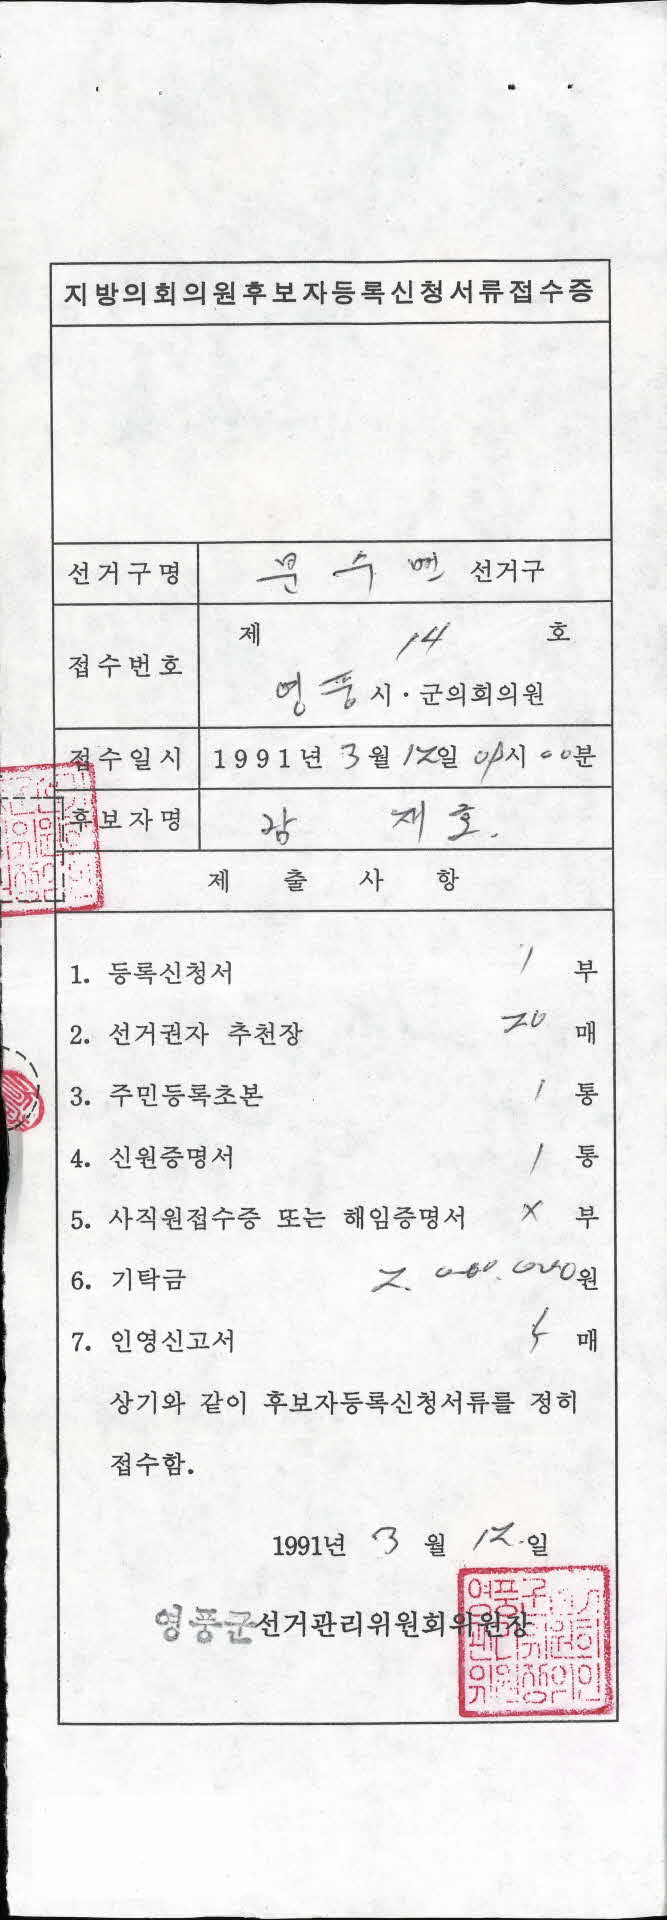 지방의회의원후보자등록신청서류접수증
선거구명 문수면 선거구
접수번호 제 14 호
영풍 시·군의회의원
접수일시 1991년 3월 12일 시 00분
후보자명 재호.
제 출 사 항
1. 등록신청서 1 부
2. 선거권자 추천장 20 매
3. 주민등록초본 1 통
4. 신원증명서 1 통
5. 사직원접수증 또는 해임증명서 × 부
6. 기탁금 2.000.000원
7. 인영신고서 매
상기와 같이 후보자등록신청서류를 정히
접수함.
1991년 3 월 12.일
영풍군선거관리위원회위원장